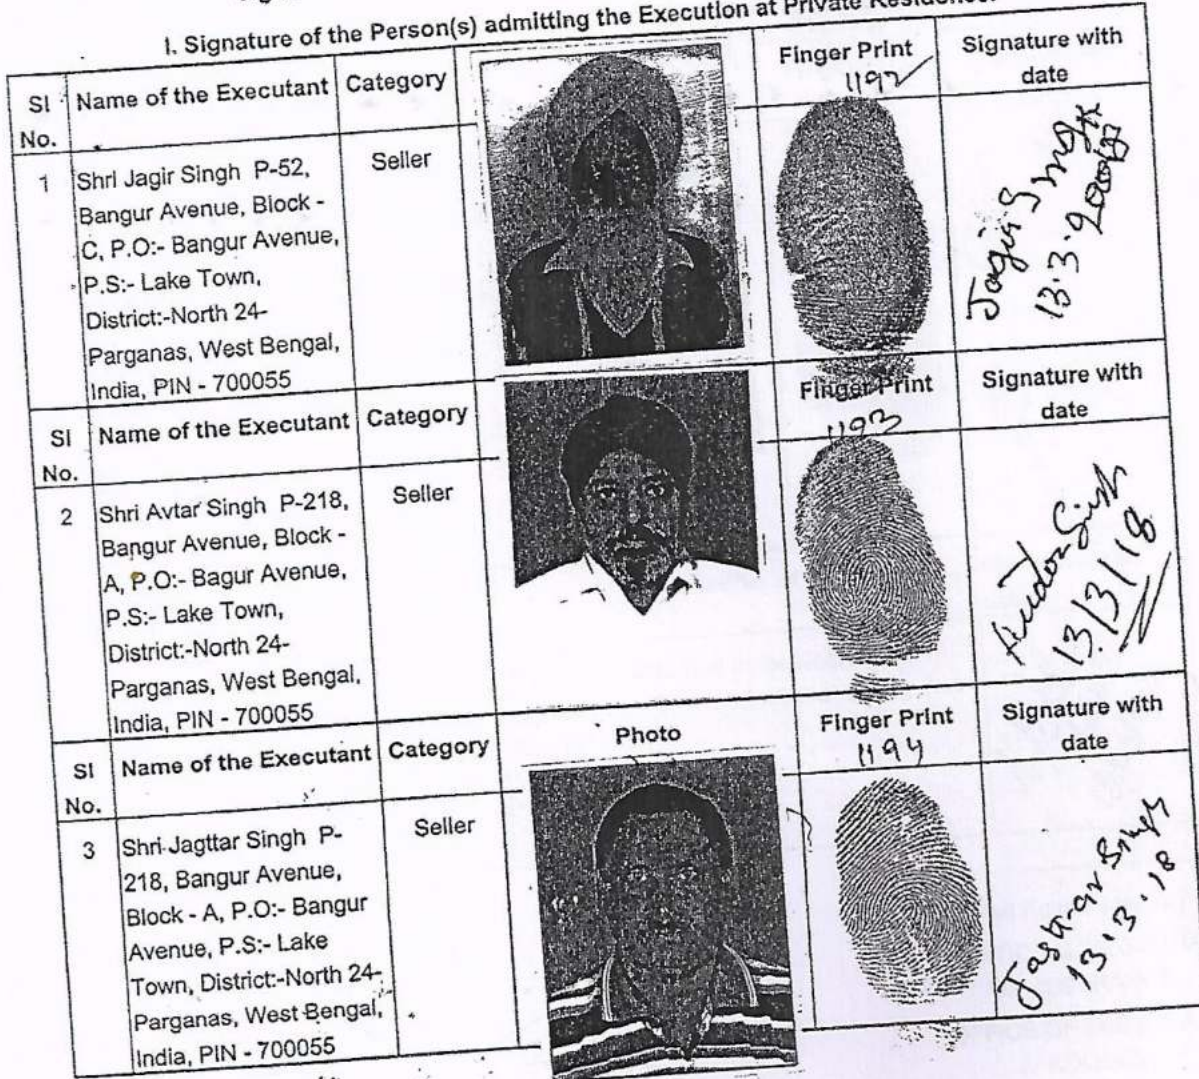 I. Signature of the Person(s) admitting the Execution at Private Residence.
Sl No. Name of the Executant Category Finger Print Signature with date
1192
1 Shri Jagir Singh P-52, Seller
Bangur Avenue, Block -
C, P.O:- Bangur Avenue,
P.S:- Lake Town,
District:-North 24-
Parganas, West Bengal,
India, PIN - 700055
Jagir Singh
13.3.
Sl No. Name of the Executant Category Finger Print Signature with date
1193
2 Shri Avtar Singh P-218, Seller
Bangur Avenue, Block -
A, P.O:- Bagur Avenue,
P.S:- Lake Town,
District:-North 24-
Parganas, West Bengal,
India, PIN - 700055
Singh
13/3/18
Sl No. Name of the Executant Category Photo Finger Print Signature with date
1194
3 Shri Jagttar Singh P- Seller
218, Bangur Avenue,
Block - A, P.O:- Bangur
Avenue, P.S:- Lake
Town, District:-North 24-
Parganas, West Bengal,
India, PIN - 700055
Singh
13.3.18